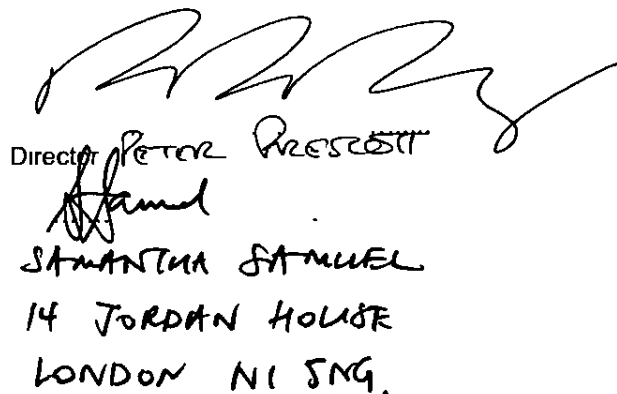 Director PETER PRESCOTT
SAMANTHA SAMUEL
14 JORDAN HOUSE
LONDON N1 5NG.